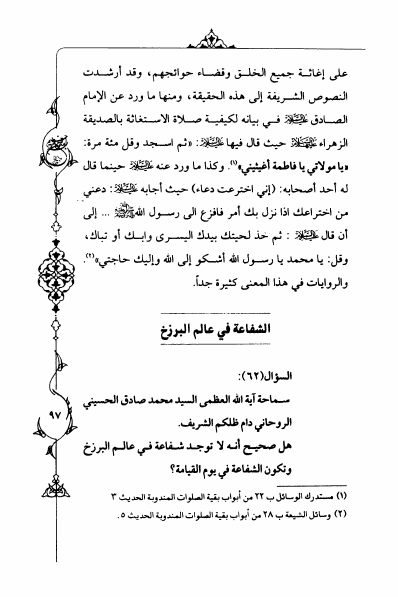 على إغاثة جميع الخلق وقضاء حوائجهم، وقد أرشدت
النصوص الشريفة إلى هذه الحقيقة، ومنها ما ورد عن الإمام
الصادق عليه السلام في بيانه لكيفية صلاة الاستغاثة بالصديقة
الزهراء عليها السلام حيث قال فيها عليه السلام: «ثم اسجد وقل مئة مرة:
«يا مولاتي يا فاطمة أغيثيني»(١). وكذا ما ورد عنه عليه السلام حينما قال
له أحد أصحابه: (إني اخترعت دعاء) حيث أجابه عليه السلام: دعني
من اختراعك اذا نزل بك أمر فافزع الى رسول الله ﷺ ... إلى
أن قال عليه السلام: ثم خذ لحيتك بيدك اليسرى وابك أو تباك،
وقل: يا محمد يا رسول الله أشكو إلى الله وإليك حاجتي»(٢).
والروايات في هذا المعنى كثيرة جداً.
الشفاعة في عالم البرزخ
السؤال(٦٢):
سماحة آية الله العظمى السيد محمد صادق الحسيني
الروحاني دام ظلكم الشريف.
هل صحيح أنه لا توجد شفاعة في عالم البرزخ
وتكون الشفاعة في يوم القيامة؟
٩٧
(١) مستدرك الوسائل ب ٢٢ من أبواب بقية الصلوات المندوبة الحديث ٣
(٢) وسائل الشيعة ب ٢٨ من أبواب بقية الصلوات المندوبة الحديث ٥.